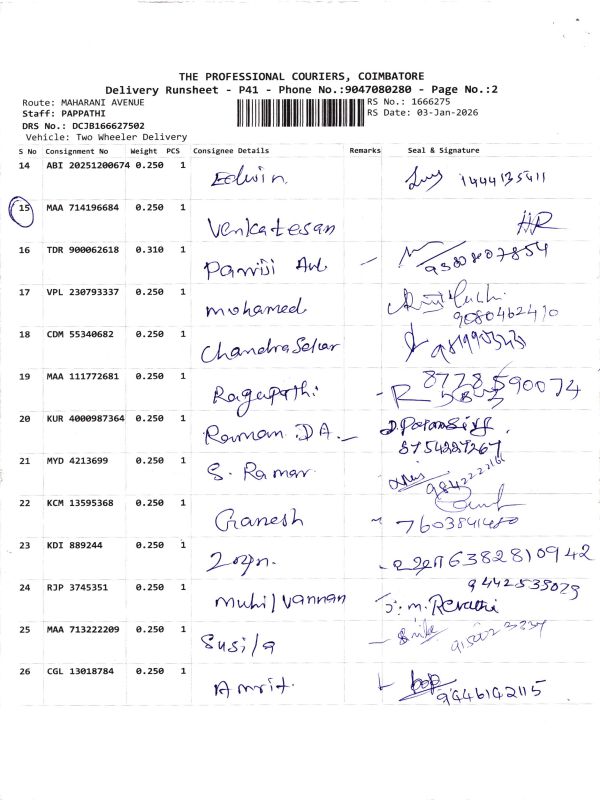 THE PROFESSIONAL COURIERS, COIMBATORE
Delivery Runsheet - P41 - Phone No.:9047080280 - Page No.:2
Route: MAHARANI AVENUE RS No.: 1666275
Staff: PAPPATHI RS Date: 03-Jan-2026
DRS No.: DCJB166627502
Vehicle: Two Wheeler Delivery
S No Consignment No Weight PCS Consignee Details Remarks Seal & Signature
14 ABI 20251200674 0.250 1 Edwin
15 MAA 714196684 0.250 1 Venkatesan HR
16 TDR 900062618 0.310 1
17 VPL 230793337 0.250 1 mohamed 9080462410
18 CDM 55340682 0.250 1 Chandra Sekar
19 MAA 111772681 0.250 1 Ragupathi 8778590074
20 KUR 4000987364 0.250 1 Raman .D.A. 8754227267
21 MYD 4213699 0.250 1 S. Raman
22 KCM 13595368 0.250 1 Ganesh
23 KDI 889244 0.250 1 6382810942
24 RJP 3745351 0.250 1 Muhil Vannan 9442535029 J. m. Revathi
25 MAA 713222209 0.250 1 Susila
26 CGL 13018784 0.250 1 Amrit. 9446142115